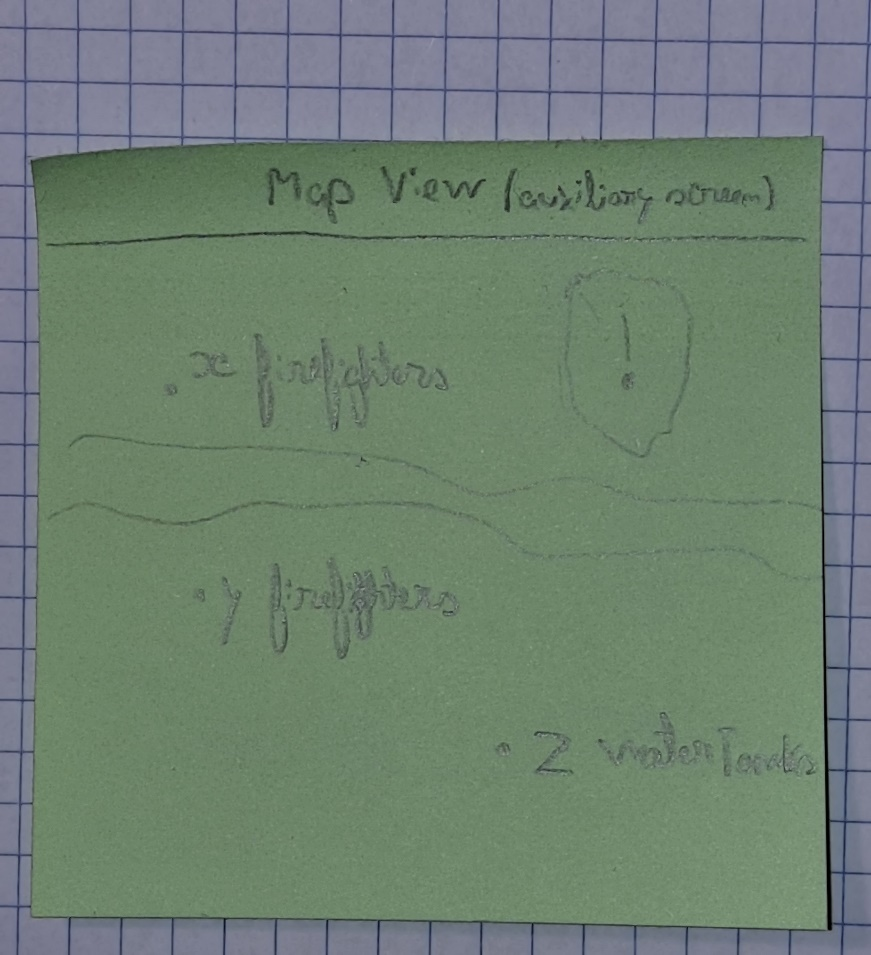 Map View (auxiliary screen)
!
. x firefighters
. y firefighters
. Z water Tanks